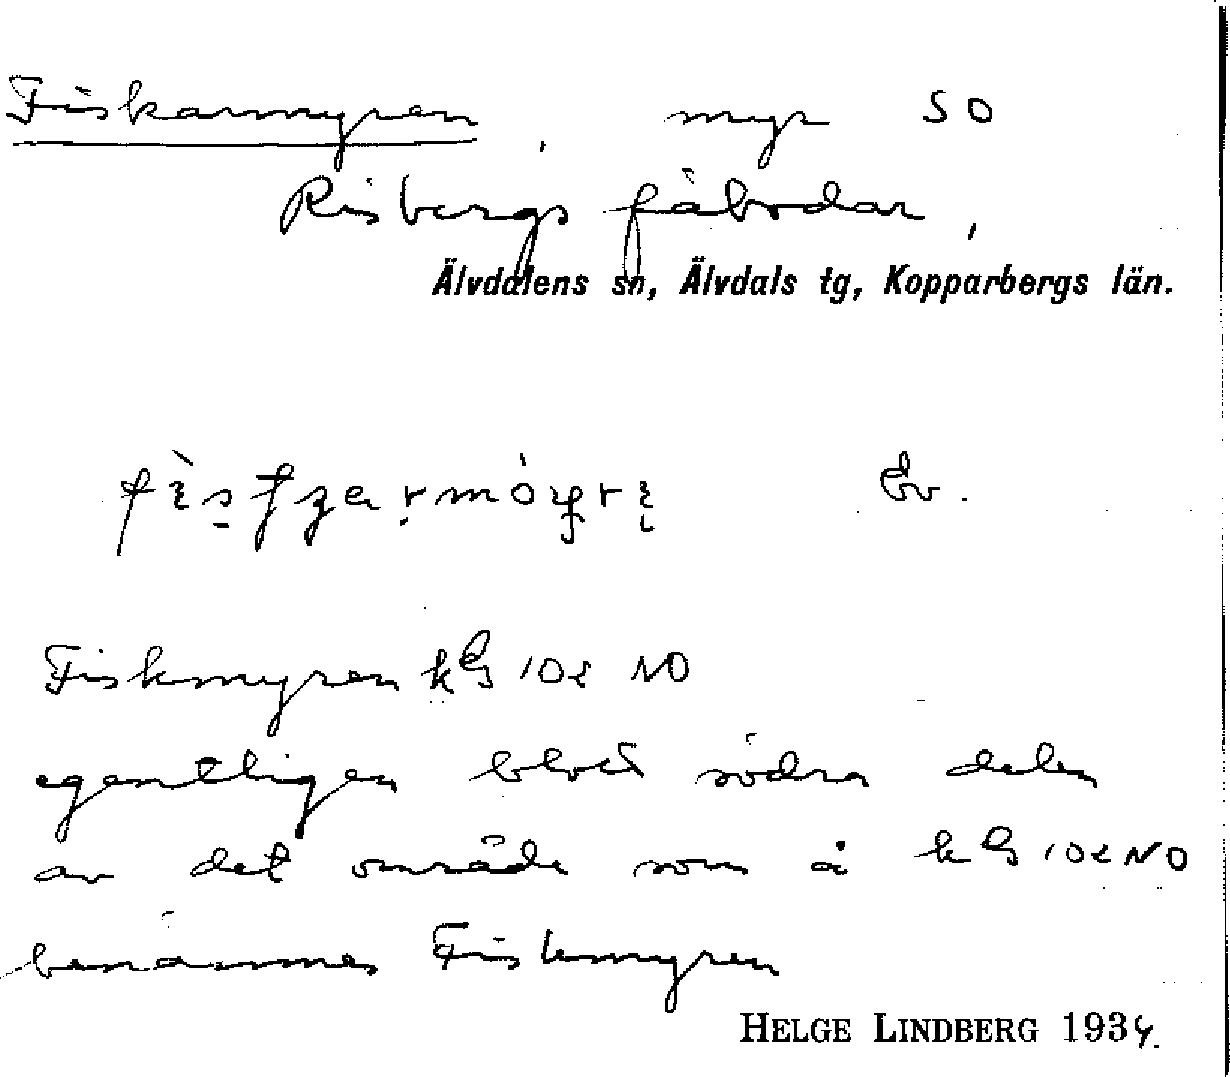 Fiskarmyren, myr SO
Risbergs fäbodar,
Älvdalens sn, Älvdals tg, Kopparbergs län.
Äv.
Fiskmyren kG 102 NO
egentligen blott södra delen
av det område som å kG 102 NO
benämnes Fiskmyren
HELGE LINDBERG 1934.